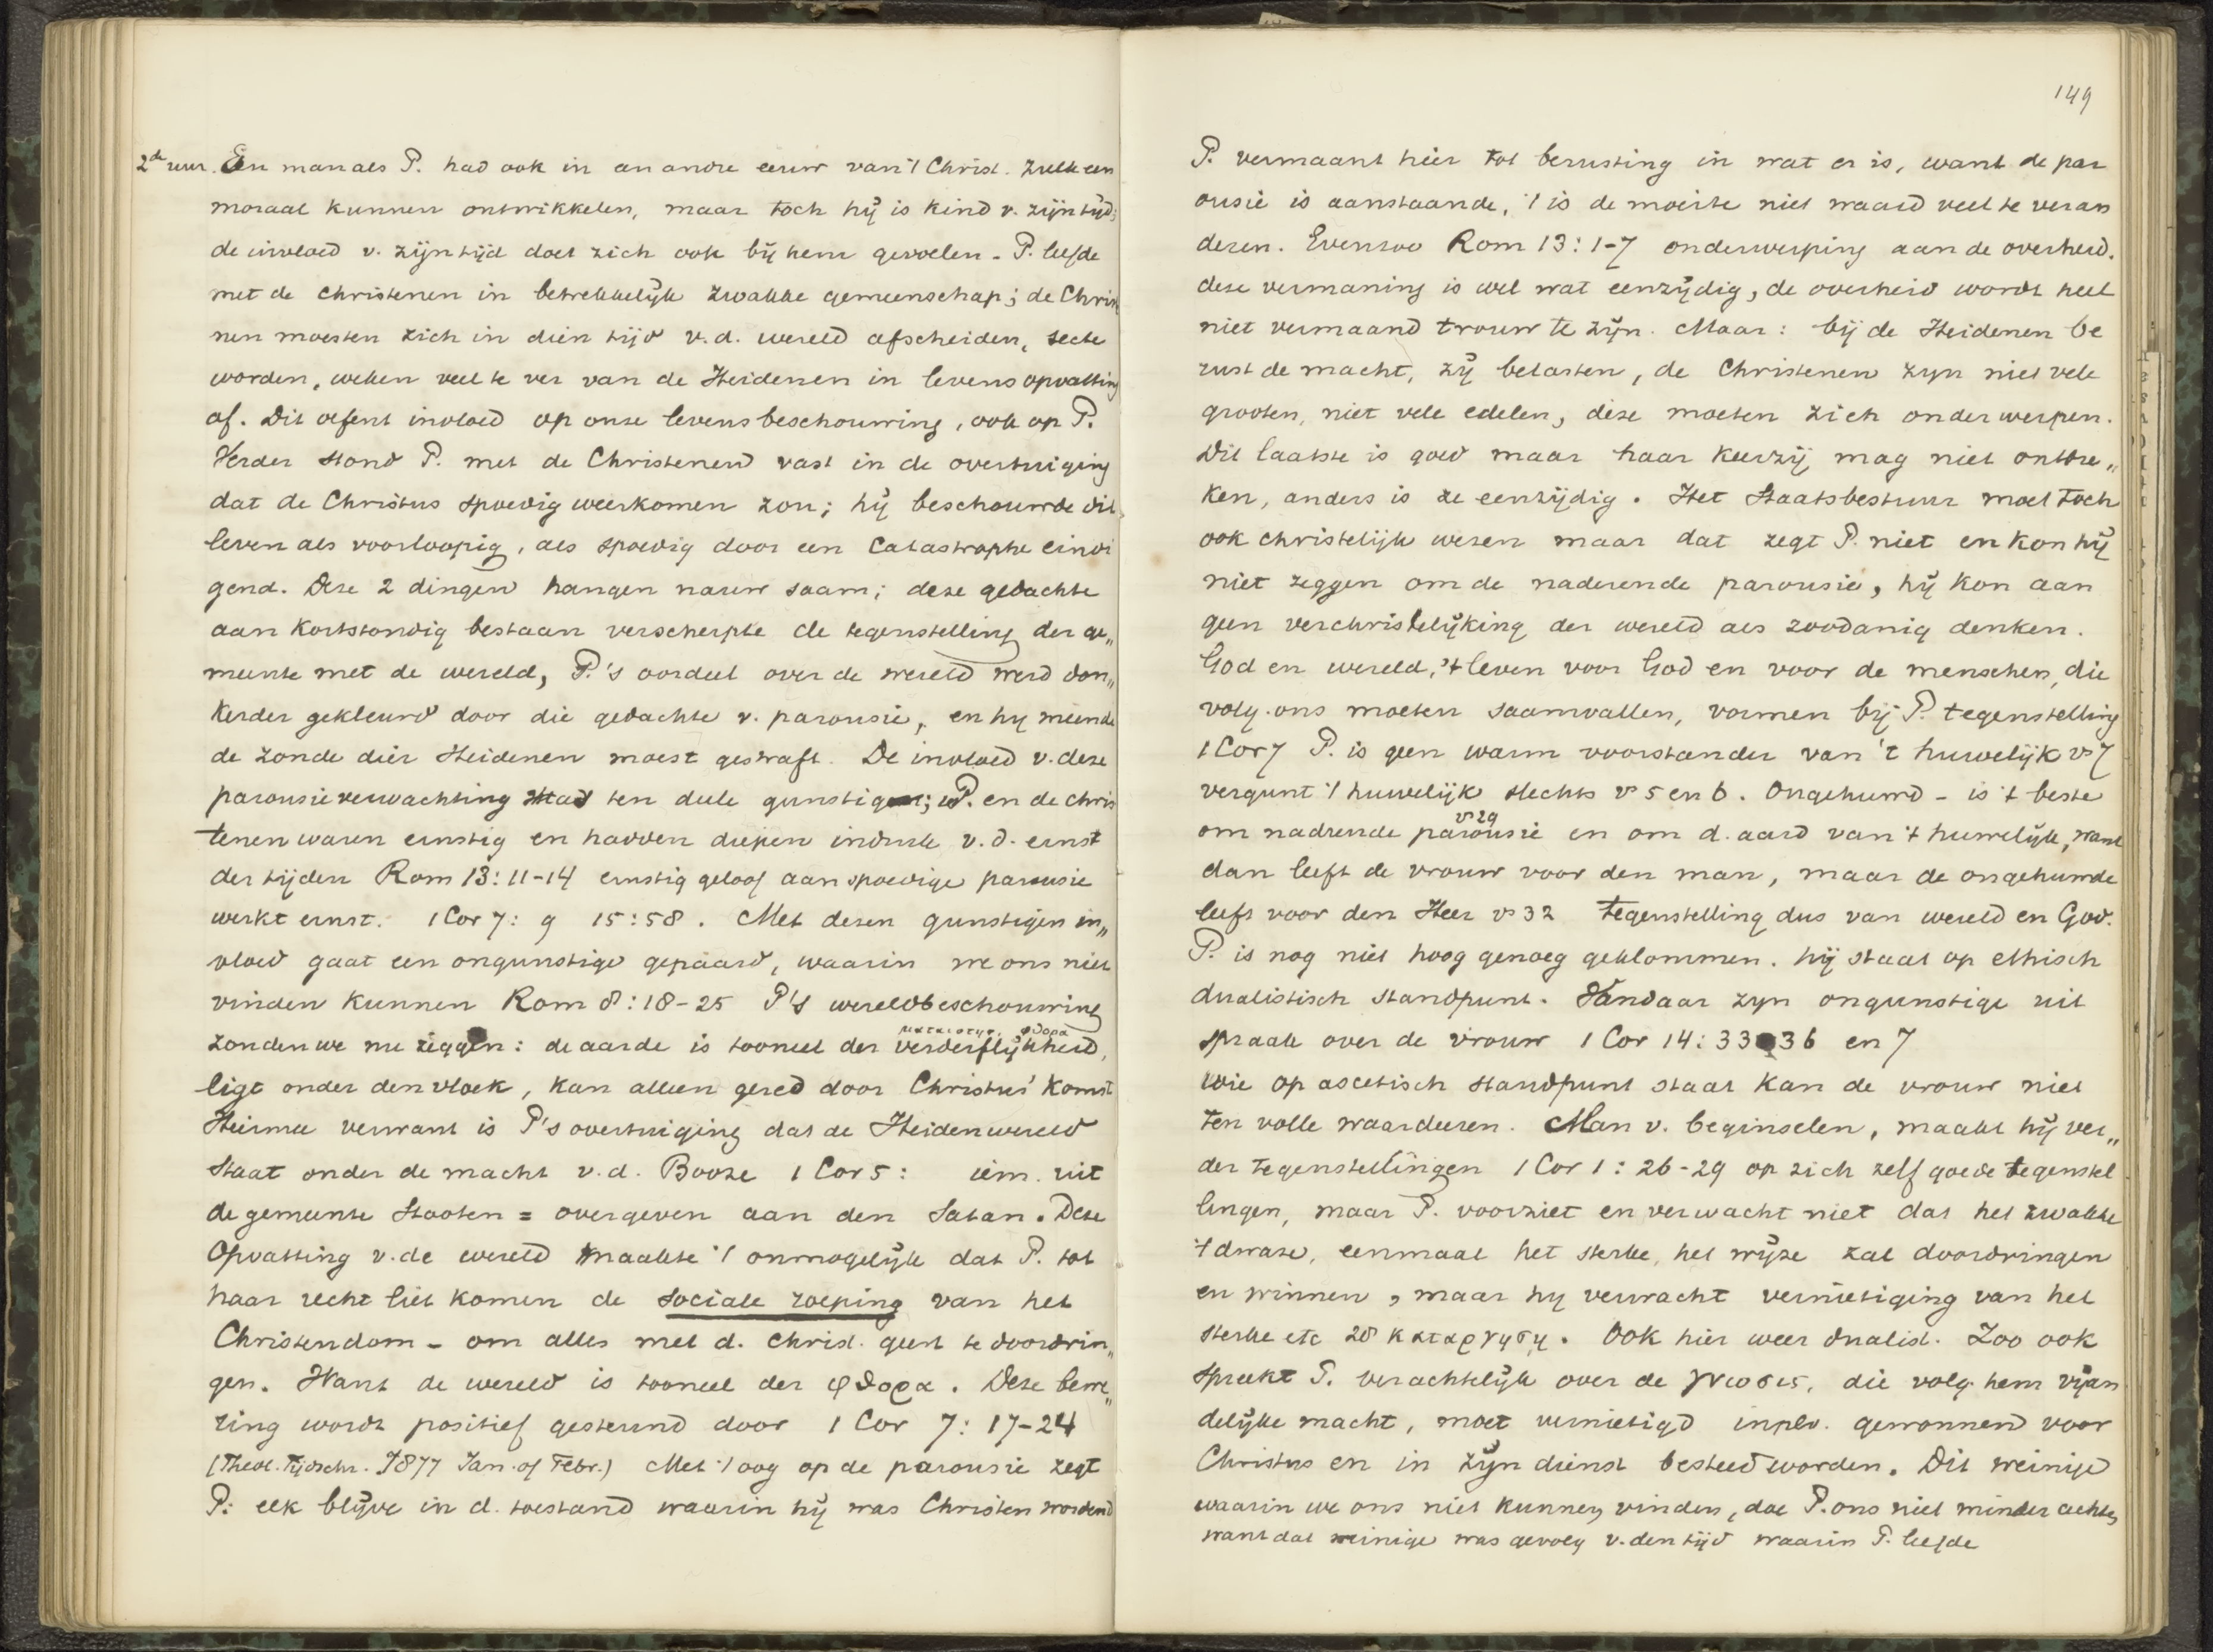 2de uur. Een man als P. had ook in een andre eeuw van 't Christ. zulk een
moraal kunnen ontwikkelen, maar toch hij is kind v. zijn tijd;
de invloed v. zijn tijd doet zich ook bij hem gevoelen. P. leefde
met de christenen in betrekkelijk zwakke gemeenschap; de Chris
nen moesten zich in dien tijd v.d. wereld afscheiden, secte
worden, weken veel te ver van de Heidenen in levensopvatting
af. Dit oefent invloed op onze levensbeschouwing, ook op P.
Verder stond P. met de Christenen vast in de overtuiging
dat de Christus spoedig weerkomen zou; hij beschouwde dit
leven als voorloopig, als spoedig door een Catastrophe eindi
gend. Deze 2 dingen hangen nauw saam; deze gedachte
aan kortstondig bestaan verscherpte de tegenstelling der ge„
meente met de wereld, P.'s oordeel over de wereld werd don„
kerder gekleurd door die gedachte v. parousie, en hij meende
de zonde dier Heidenen moest gestraft. De invloed v. deze
parousieverwachting had ten deele gunstig; P. en de chris
tenen waren ernstig en hadden diepen indruk v.d. ernst
der tijden Rom 13:11-14 ernstig geloof aan spoedige parousie
werkt ernst. 1 Cor 7: 9 15:58. Met dezen gunstigen in„
vloed gaat een ongunstige gepaard, waarin we ons niet
vinden kunnen Rom 8:18-25 P's wereldbeschouwing
ματαιοτης, φθορα
zouden we nu zeggen: de aarde is tooneel der verderflijkheid,
ligt onder den vloek, kan alleen gered door Christus' komst
Hiermee verwant is P's overtuiging dat de Heidenwereld
staat onder de macht v.d. Booze 1 Cor 5: iem. uit
de gemeente stooten = overgeven aan den Satan. Deze
Opvatting v.de wereld maakte 't onmogelijk dat P. tot
haar recht liet komen de sociale roeping van het
Christendom - om alles met d. christ. geest te doordrin„
gen. Want de wereld is tooneel der φθορα. Deze bewe„
ring wordt positief gesteund door 1 Cor 7: 17-24
(Theol. Tijdschr. 1877 Jan. of Febr.) Met 't oog op de parousie zegt
P: elk blijve in d. toestand waarin hij was Christen wordend
149
P. vermaant hier tot berusting in wat er is, want de par
ousie is aanstaande, 't is de moeite niet waard veel te veran
deren. Evenzoo Rom 13:1-7 onderwerping aan de overheid.
deze vermaning is wel wat eenzijdig, de overheid wordt heel
niet vermaand trouw te zijn. Maar: bij de Heidenen be
rust de macht, zij belasten, de Christenen zyn niet vele
grooten, niet vele edelen, deze moeten zich onderwerpen.
Dit laatste is goed maar haar keerzij mag niet ontbre„
ken, anders is ze eenzijdig. Het Staatsbestuur moet toch
ook christelijk wezen maar dat zegt P. niet en kon hij
niet zeggen om de naderende parousie, hij kon aan
geen verchristelijking der wereld als zoodanig denken.
God en wereld, 't leven voor God en voor de menschen, die
volg. ons moeten saamvallen, vormen bij P. tegenstelling
1 Cor 7 P. is geen warm voorstander van 't huwelijk vs 7
vergunt 't huwelijk slechts vs 5 en 6. Ongehuwd - is 't beste
vs 29
om nadrende parousie en om d. aard van 't huwelijk, want
dan leeft de vrouw voor den man, maar de ongehuwde
leeft voor den Heer vs 32 tegenstelling dus van wereld en God.
P. is nog niet hoog genoeg geklommen. hij staat op ethisch
dualistisch standpunt. Vandaar zyn ongunstige uit
spraak over de vrouw 1 Cor 14:33-36 en 7
Wie op ascetisch standpunt staat kan de vrouw niet
ten volle waardeeren. Man v. beginselen, maakt hij ver„
der tegenstellingen 1 Cor 1:26-29 op zich zelf goede tegenstel
lingen, maar P. voorziet en verwacht niet dat het zwakke
't dwaze, eenmaal het sterke, het wijze zal doordringen
en winnen, maar hij verwacht vernietiging van het
sterke etc 28 καταργηση. Ook hier weer dualist. Zoo ook
spreekt P. verachtelijk over de γνωσις, die volg. hem vijan
delijke macht, moet vernietigd inplv. gewonnen voor
Christus en in zijn dienst besteed worden. Dit weinige
waarin we ons niet kunnen vinden, doe P. ons niet minder achten
want dat weinige was gevolg v. den tijd waarin P. leefde